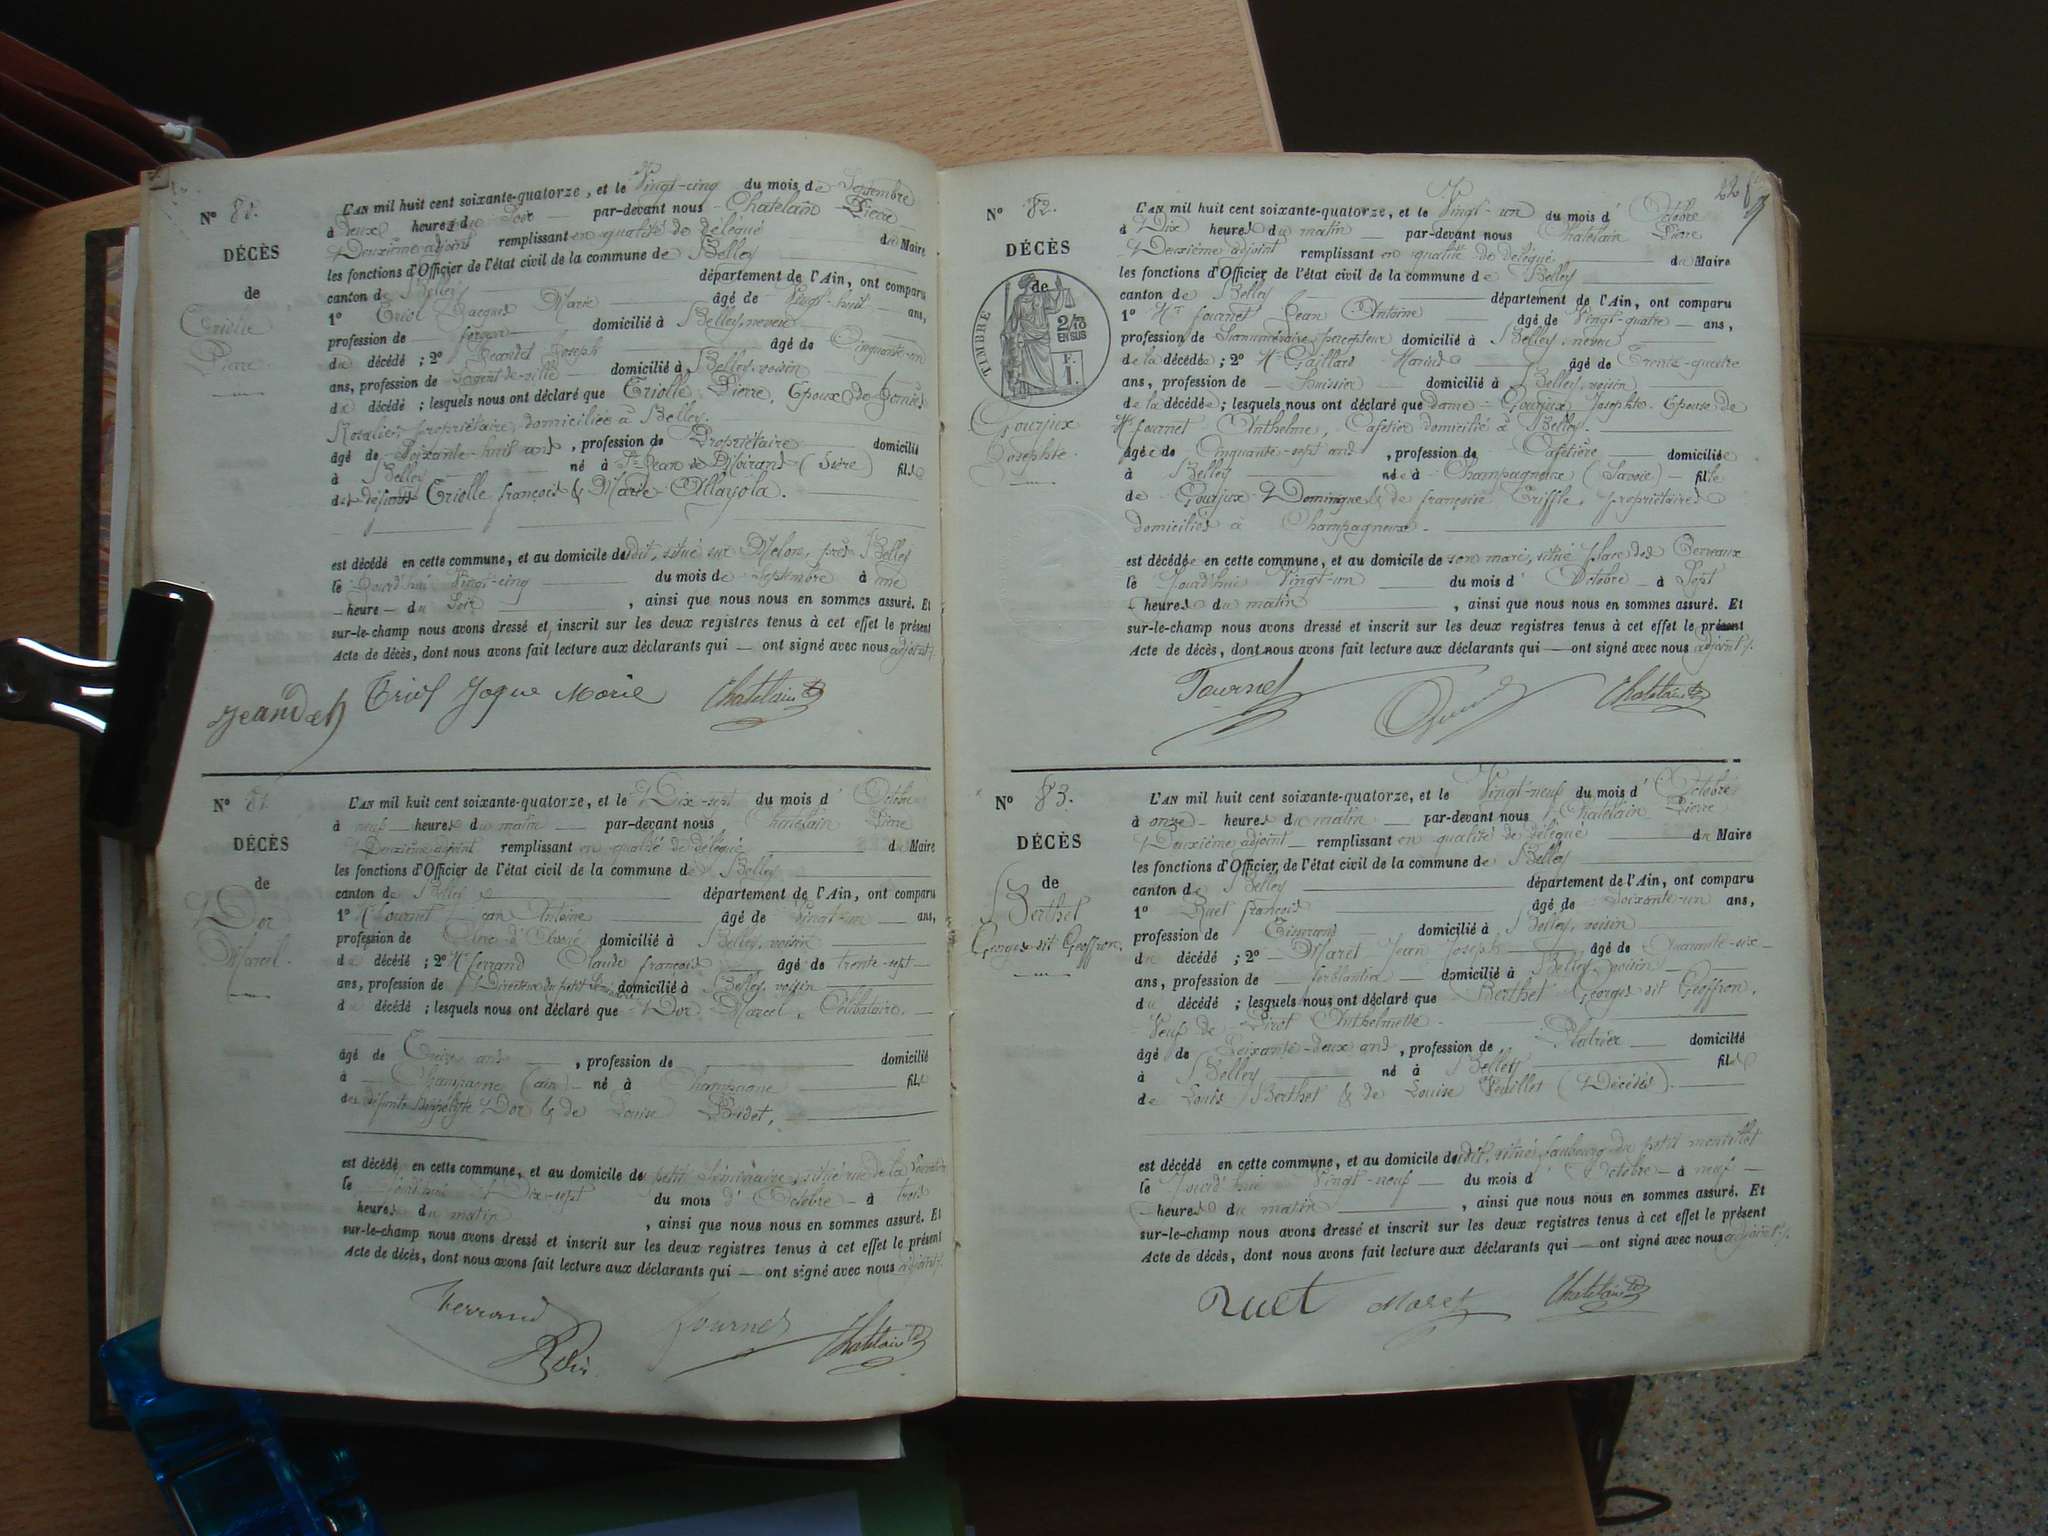 N° 80.
DÉCÈS
de
Criolle
Pierre.
L'AN mil huit cent soixante-quatorze, et le Vingt-cinq du mois de Septembre
à deux heures du Soir par-devant nous Chatelain Pierre
Deuxième adjoint remplissant en qualité de délégué du Maire
les fonctions d'Officier de l'état civil de la commune de Belley
canton de Belley département de l'Ain, ont comparu
1° Criol Jacques Marie âgé de Vingt-huit ans,
profession de domicilié à Belley, neveu
du décédé ; 2° Jeandet Joseph âgé de Cinquante-un
ans, profession de Sergent de ville domicilié à Belley, voisin
du décédé ; lesquels nous ont déclaré que Criolle Pierre, Epoux de
Rosalie, propriétaire, domiciliée à Belley.
âgé de Soixante-huit ans, profession de Propriétaire domicilié
à Belley né à St Jean de Moirans (Isère) fils
des défunts Criolle françois & Marie Allajola.
est décédé en cette commune, et au domicile dudit, situé sur Melon, près Belley
le Jourd'hui Vingt-cinq du mois de Septembre à une
heure du Soir, ainsi que nous nous en sommes assuré. Et
sur-le-champ nous avons dressé et inscrit sur les deux registres tenus à cet effet le présent
Acte de décès, dont nous avons fait lecture aux déclarants qui ont signé avec nous adjoint.
Jeandet Criol Jaque Marie Chatelain
N° 81.
DÉCÈS
de
Dor
Marcel.
L'AN mil huit cent soixante-quatorze, et le Dix-sept du mois d'Octobre
à neuf heures du matin par-devant nous Chatelain Pierre
Deuxième adjoint remplissant en qualité de délégué du Maire
les fonctions d'Officier de l'état civil de la commune de Belley
canton de Belley département de l'Ain, ont comparu
1° Mr fournet Jean Antoine âgé de Vingt-un ans,
profession de domicilié à Belley, voisin
du décédé ; 2° Mr ferrand Claude françois âgé de trente-sept
ans, profession de Directeur du petit Séminaire domicilié à Belley, voisin
du décédé ; lesquels nous ont déclaré que Dor Marcel, Célibataire.
âgé de Treize ans, profession de domicilié
à Champagne (ain) né à Champagne fils
des défunts hippolyte Dor & de Louise Bidet.
est décédé en cette commune, et au domicile de petit Séminaire, situé rue de la
le Jourd'hui Dix-sept du mois d'Octobre à trois
heures du matin, ainsi que nous nous en sommes assuré. Et
sur-le-champ nous avons dressé et inscrit sur les deux registres tenus à cet effet le présent
Acte de décès, dont nous avons fait lecture aux déclarants qui ont signé avec nous adjoint.
Ferrand fournet Chatelain
N° 82.
DÉCÈS
de
TIMBRE
2/10
EN SUS
F.
1.
Gourjux
Josephte.
L'AN mil huit cent soixante-quatorze, et le Vingt-un du mois d'Octobre
à Dix heures du matin par-devant nous Chatelain Pierre
Deuxième adjoint remplissant en qualité de délégué du Maire
les fonctions d'Officier de l'état civil de la commune de Belley
canton de Belley département de l'Ain, ont comparu
1° Mr fournet Jean Antoine âgé de Vingt-quatre ans,
profession de Surnuméraire percepteur domicilié à Belley, neveu
de la décédée ; 2° Mr Gaillard âgé de Trente-quatre
ans, profession de huissier domicilié à Belley, voisin
de la décédée ; lesquels nous ont déclaré que dame Gourjux Josephte, Epouse de
Mr fournet Anthelme, Cafetier domicilié à Belley.
âgée de Cinquante-sept ans, profession de Cafetière domiciliée
à Belley née à Champagneux (Savoie) fille
de Gourjux Dominique & de françoise Triffle, propriétaires
domiciliés à Champagneux.
est décédée en cette commune, et au domicile de son mari, situé place des Terreaux
le Jourd'hui Vingt-un du mois d'Octobre à Sept
heures du matin, ainsi que nous nous en sommes assuré. Et
sur-le-champ nous avons dressé et inscrit sur les deux registres tenus à cet effet le présent
Acte de décès, dont nous avons fait lecture aux déclarants qui ont signé avec nous adjoint.
Fournet Chatelain
N° 83.
DÉCÈS
de
Berthet
Georges dit Geoffron.
L'AN mil huit cent soixante-quatorze, et le Vingt-neuf du mois d'Octobre
à onze heures du matin par-devant nous Chatelain Pierre
Deuxième adjoint remplissant en qualité de délégué du Maire
les fonctions d'Officier de l'état civil de la commune de Belley
canton de Belley département de l'Ain, ont comparu
1° Ruet françois âgé de Soixante-un ans,
profession de Tisserand domicilié à Belley, voisin
du décédé ; 2° Maret Jean Joseph âgé de Quarante-six
ans, profession de ferblantier domicilié à Belley, voisin
du décédé ; lesquels nous ont déclaré que Berthet Georges dit Geoffron,
Veuf de Pirot Anthelmette.
âgé de Soixante-deux ans, profession de Platrier domicilié
à Belley né à Belley fils
de Louis Berthet & de Louise Veuillet (Décédés).
est décédé en cette commune, et au domicile dudit, situé faubourg du petit
le Jourd'hui Vingt-neuf du mois d'Octobre à neuf
heures du matin, ainsi que nous nous en sommes assuré. Et
sur-le-champ nous avons dressé et inscrit sur les deux registres tenus à cet effet le présent
Acte de décès, dont nous avons fait lecture aux déclarants qui ont signé avec nous adjoint.
Ruet Maret Chatelain